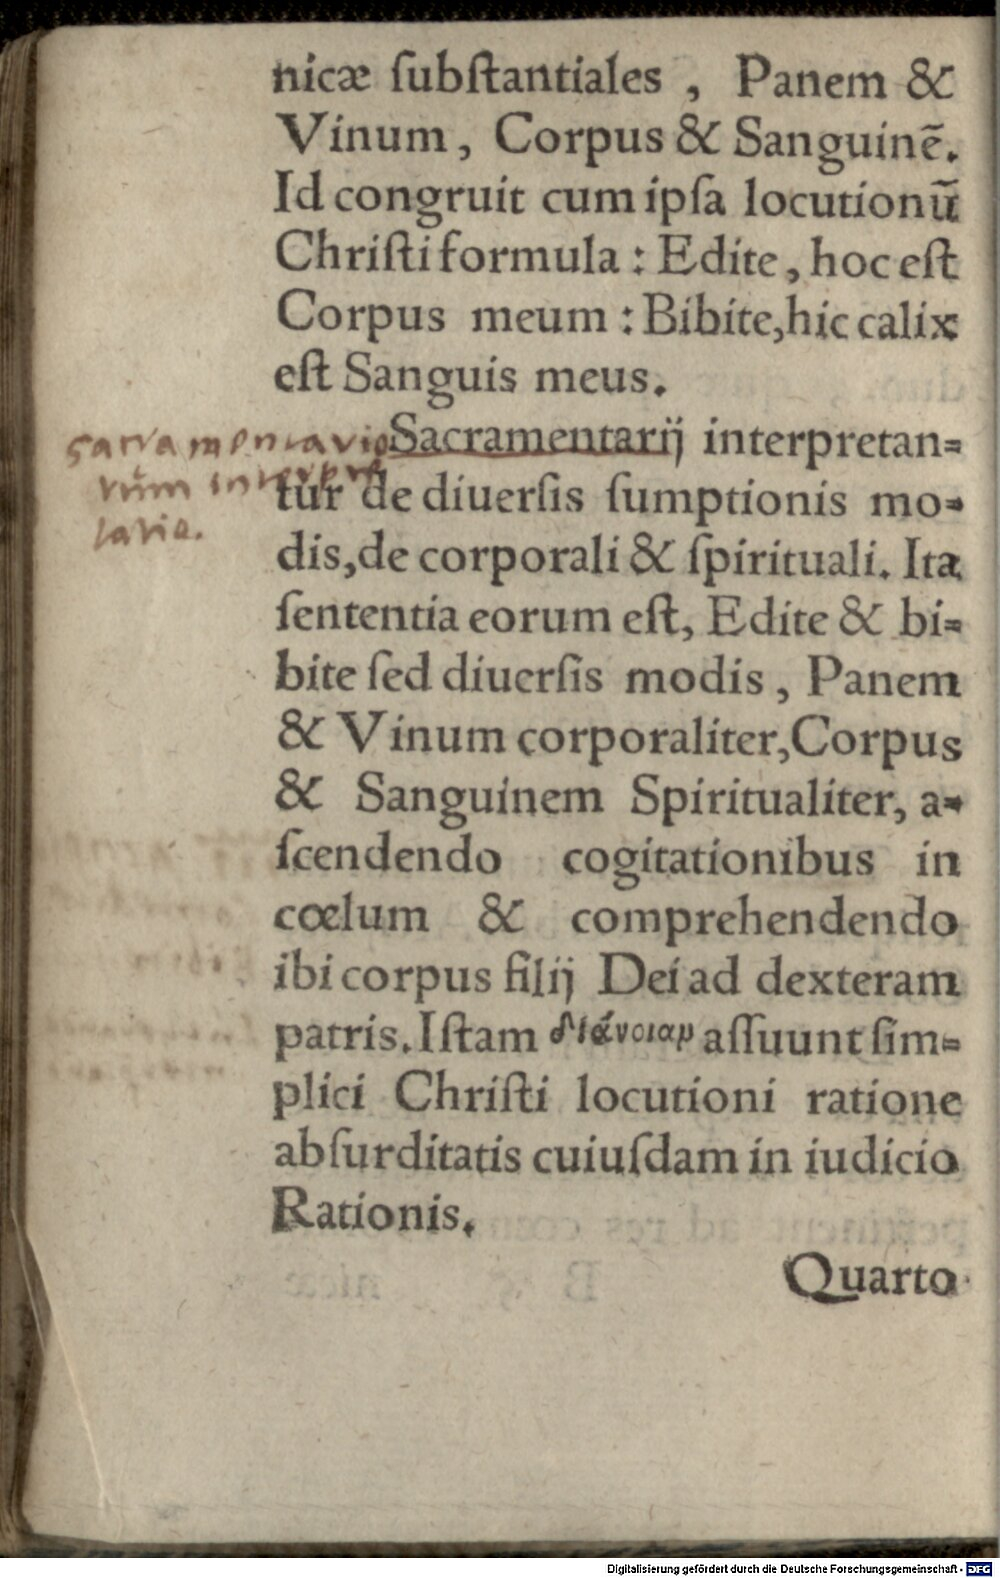 nicæ ſubſtantiales , Panem &
Vinum, Corpus & Sanguinẽ.
Id congruit cum ipſa locutionũ
Chriſti formula : Edite, hoc eſt
Corpus meum : Bibite, hic calix
eſt Sanguis meus.
Sacramentario
Sacramentarij interpretan=
rum interpre
tur de diuerſis ſumptionis mo=
tatio.
dis, de corporali & ſpirituali. Ita
ſententia eorum eſt, Edite & bi=
bite ſed diuerſis modis, Panem
& Vinum corporaliter, Corpus
& Sanguinem Spiritualiter, a=
ſcendendo cogitationibus in
cœlum & comprehendendo
ibi corpus filij Dei ad dexteram
patris. Iſtam διάνοιαν aſſuunt ſim=
plici Chriſti locutioni ratione
abſurditatis cuiuſdam in iudicio
Rationis.
Quarto
Digitalisierung gefördert durch die Deutsche Forschungsgemeinschaft - DFG